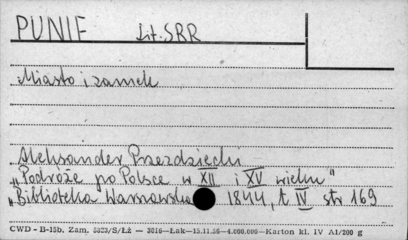 PUNIE Lit. SRR
Miasto i zamek
Aleksander Przezdziecki
„Podróże po Polsce w XII i XV wieku"
„Biblioteka Warszawska 1844, t IV str 169
CWD - B-15b. Zam. 5323/S/Łż — 3016—Łak—15.11.56—4.000.000—Karton kl. IV A1/200 g